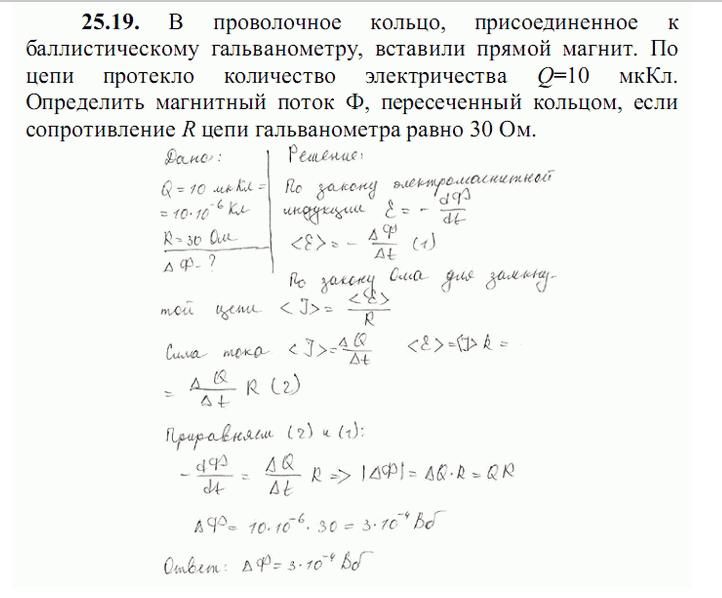 25.19. В проволочное кольцо, присоединенное к
баллистическому гальванометру, вставили прямой магнит. По
цепи протекло количество электричества Q=10 мкКл.
Определить магнитный поток Ф, пересеченный кольцом, если
сопротивление R цепи гальванометра равно 30 Ом.
Дано:
Q = 10 мкКл =
= 10·10⁻⁶ Кл
R = 30 Ом
ΔФ - ?
Решение:
По закону электромагнитной
индукции ℰ = - dФ/dt
<ℰ> = - ΔФ/Δt (1)
По закону Ома для замкну-
той цепи <J> = <ℰ>/R
Сила тока <J> = ΔQ/Δt <ℰ> = <J> R =
= ΔQ/Δt R (2)
Приравняем (2) и (1):
- dФ/dt = ΔQ/Δt R => |ΔФ| = ΔQ·R = QR
ΔФ = 10·10⁻⁶·30 = 3·10⁻⁴ Вб
Ответ: ΔФ = 3·10⁻⁴ Вб